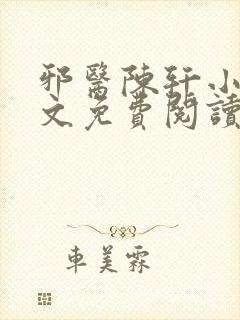 邪醫陳軒小
文免費閱讀
車美霖